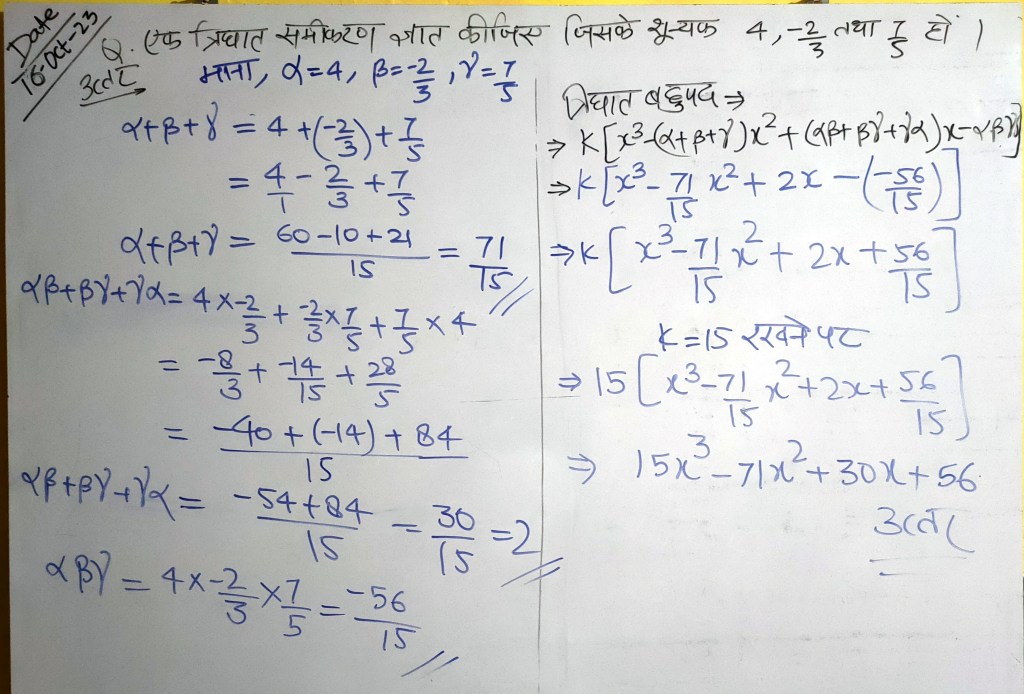 Date
16-Oct-23
Q. एक त्रिघात समीकरण ज्ञात कीजिए जिसके शून्यक 4, -2/3 तथा 7/5 हों ।
उत्तर
माना, α=4, β=-2/3, γ=7/5
α+β+γ = 4+(-2/3)+7/5
= 4/1 - 2/3 + 7/5
α+β+γ = 60-10+21/15 = 71/15
αβ+βγ+γα = 4×-2/3 + -2/3×7/5 + 7/5×4
= -8/3 + -14/15 + 28/5
= -40+(-14)+84/15
αβ+βγ+γα = -54+84/15 = 30/15 = 2
αβγ = 4×-2/3×7/5 = -56/15
त्रिघात बहुपद ⇒
⇒ K[x³-(α+β+γ)x²+(αβ+βγ+γα)x-αβγ]
⇒ K[x³-71/15 x²+2x-(-56/15)]
⇒ K[x³-71/15 x²+2x+56/15]
K=15 रखने पर
⇒ 15[x³-71/15 x²+2x+56/15]
⇒ 15x³-71x²+30x+56.
उत्तर